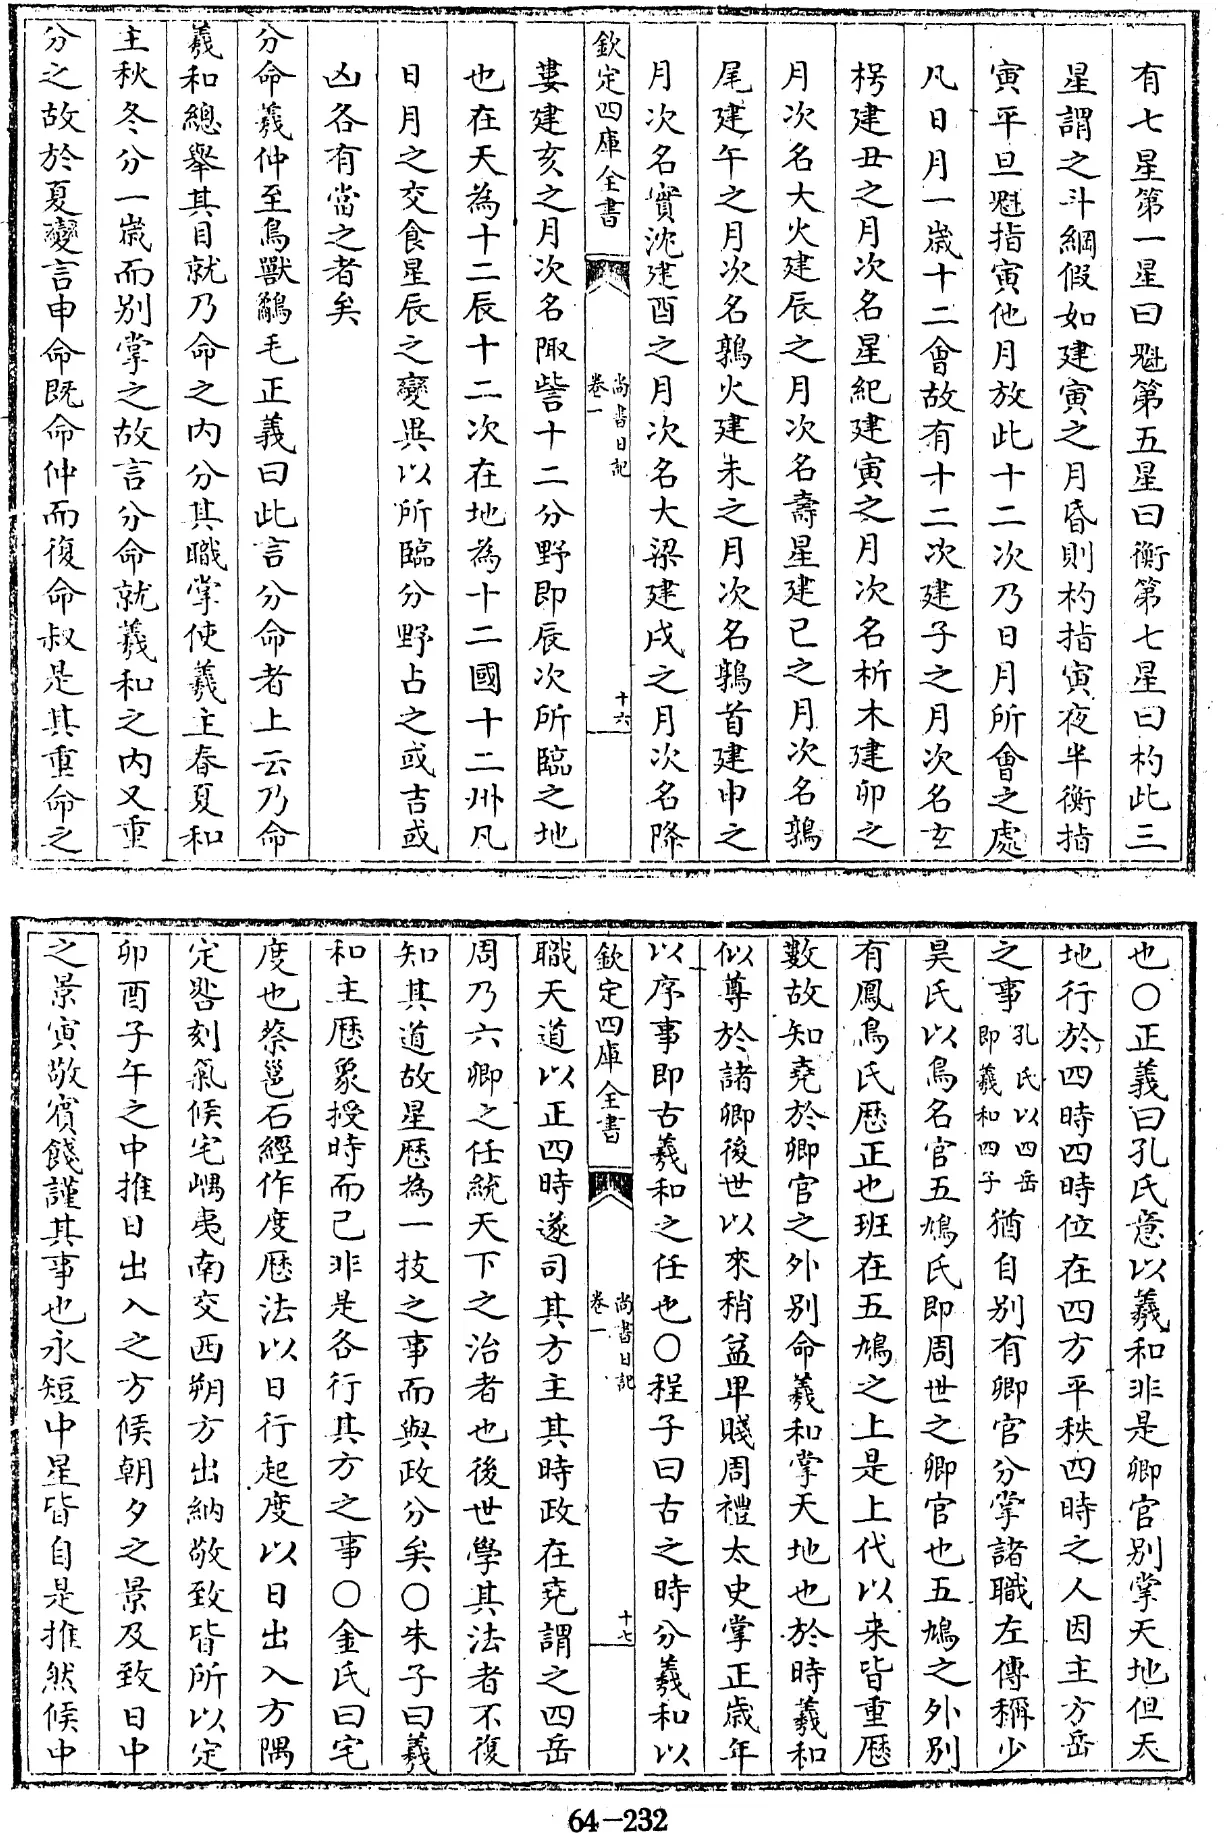 有七星第一星曰魁第五星曰衡第七星曰杓此三
星謂之斗綱假如建寅之月昏則杓指寅夜半衡指
寅平旦魁指寅他月放此十二次乃日月所會之處
凡日月一歲十二會故有十二次建子之月次名玄
枵建丑之月次名星紀建寅之月次名析木建卯之
月次名大火建辰之月次名壽星建巳之月次名鶉
尾建午之月次名鶉火建未之月次名鶉首建申之
月次名實沈建酉之月次名大梁建戌之月次名降
欽定四庫全書
尚書日記
卷一
十六
婁建亥之月次名陬訾十二分野即辰次所臨之地
也在天為十二辰十二次在地為十二國十二州凡
日月之交食星辰之變異以所臨分野占之或吉或
凶各有當之者矣
分命羲仲至鳥獸鷸毛正義曰此言分命者上云乃命
羲和總舉其目就乃命之內分其職掌使羲主春夏和
主秋冬分一歲而別掌之故言分命就羲和之內又重
分之故於夏變言申命既命仲而復命叔是其重命之
也○正義曰孔氏意以羲和非是卿官別掌天地但天
地行於四時四時位在四方平秩四時之人因主方岳
之事孔氏以四岳即羲和四子猶自別有卿官分掌諸職左傳稱少
昊氏以鳥名官五鳩氏即周世之卿官也五鳩之外別
有鳳鳥氏厯正也班在五鳩之上是上代以來皆重厯
數故知堯於卿官之外別命羲和掌天地也於時羲和
似尊於諸卿後世以來稍益卑賤周禮太史掌正歲年
以序事即古羲和之任也○程子曰古之時分羲和以
欽定四庫全書
尚書日記
卷一
十七
職天道以正四時遂司其方主其時政在堯謂之四岳
周乃六卿之任統天下之治者也後世學其法者不復
知其道故星厯為一技之事而與政分矣○朱子曰羲
和主厯象授時而已非是各行其方之事○金氏曰宅
度也蔡邕石經作度厯法以日行起度以日出入方隅
定晷刻氣候宅嵎夷南交西朔方出納敬致皆所以定
卯酉子午之中推日出入之方候朝夕之景及致日中
之景寅敬賓餞謹其事也永短中星皆自是推然候中
64-232